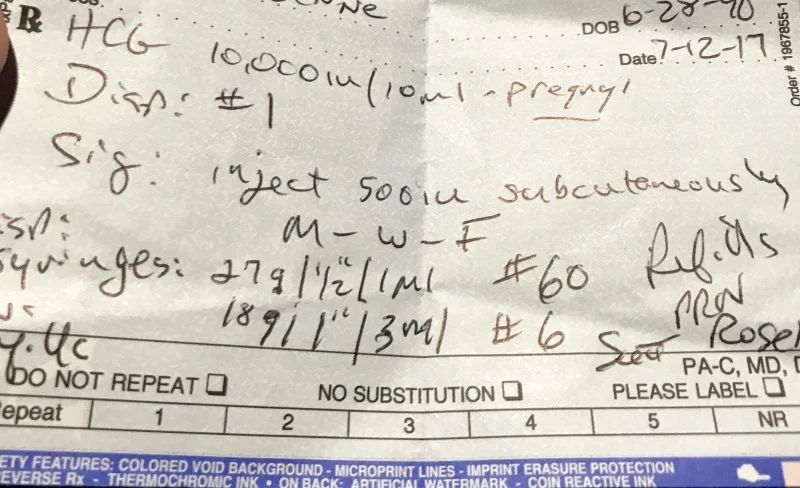 DOB 6-28-90
Rx HCG
Date 7-12-17
10,000iu/10ml - pregnyl
Order # 1967855-1
Disp: #1
Sig: inject 500iu subcutaneously
M-W-F
isp:
Syringes: 27g/½"/1ml #60 Refills
18g/1"/3ml #6 PRN
Scott Rosel
PA-C, MD, D
DO NOT REPEAT ☐ NO SUBSTITUTION ☐ PLEASE LABEL ☐
epeat 1 2 3 4 5 NR
ETY FEATURES: COLORED VOID BACKGROUND - MICROPRINT LINES - IMPRINT ERASURE PROTECTION
REVERSE Rx - THERMOCHROMIC INK • ON BACK: ARTIFICIAL WATERMARK - COIN REACTIVE INK